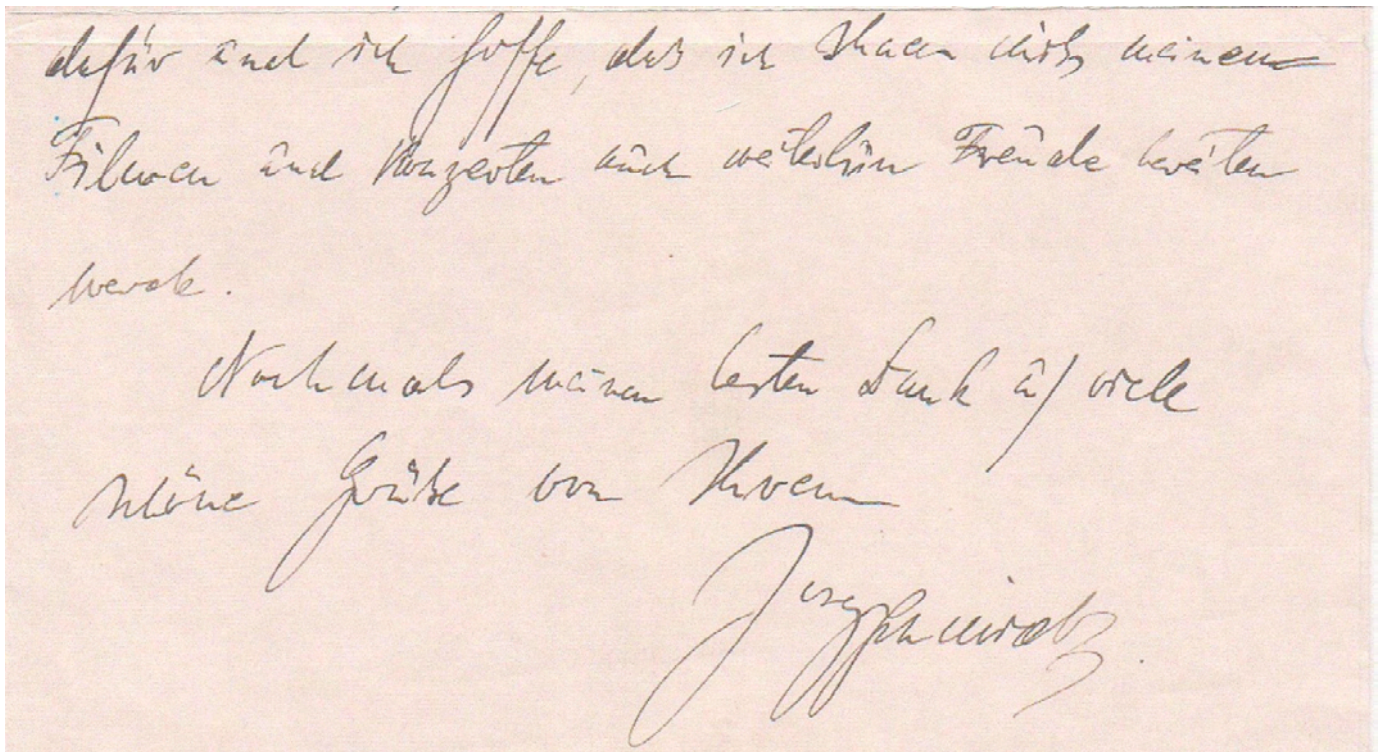 dafür und ich hoffe, daß ich Ihnen mit meinen
Filmen und Konzerten auch weiterhin Freude bereiten
werde.
Nochmals meinen besten Dank u/ viele
schöne Grüße von Ihrem
Joseph Schmidt